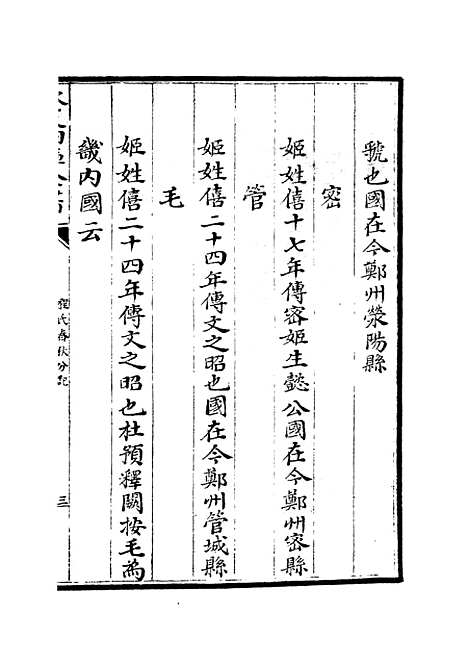 虢也國在今鄭州滎陽縣
密
姬姓僖十七年傳密姬生懿公國在今鄭州密縣
管
姬姓僖二十四年傳文之昭也國在今鄭州管城縣
毛
姬姓僖二十四年傳文之昭也杜預釋闕按毛為
畿內國云
程氏春秋分記
三